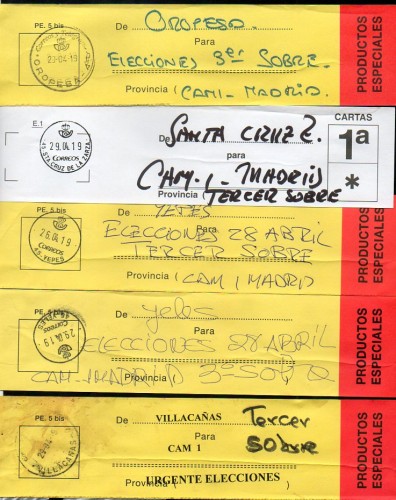 PE. 5 bis
De OROPESA
Para
ELECCIONES 3er SOBRE.
Provincia (CAM1- MADRID.
PRODUCTOS
ESPECIALES
OROPESA
29-04-19
E.1
De SANTA CRUZ Z.
para
CAM. 1 - MADRID
TERCER SOBRE
CARTAS
1ª
*
29.04.19
CORREOS
45 STA CRUZ DE LA ZARZA
PE. 5 bis
De YEPES
Para
ELECCIONES 28 ABRIL
TERCER SOBRE
Provincia ( CAM 1 MADRID
PRODUCTOS
ESPECIALES
26.04.19
CORREOS
45 YEPES
PE. 5 bis
De yeles
Para
ELECCIONES 28 ABRIL
CAM-MADRID Provincia) 3º SOBRE
PRODUCTOS
ESPECIALES
29.04.19
CORREOS
PE. 5 bis
De VILLACAÑAS Tercer
Para sobre
CAM 1
URGENTE ELECCIONES
Provincia (
PRODUCTOS
ESPECIALES
VILLACAÑAS